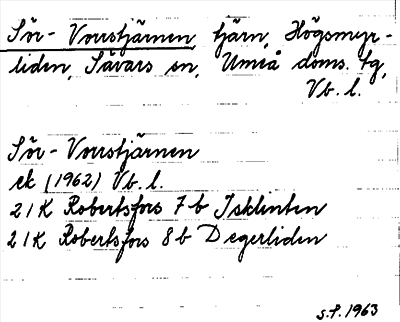 Sör-Vorrstjärnen, tjärn, Högsmyr-
liden, Sävars sn, Umeå doms. tg,
Vb. l.
Sör-Vorrstjärnen
ek (1962) Vb. l.
21K Robertsfors 7b Isklinten
21K Robertsfors 8b Degerliden
S.F. 1963